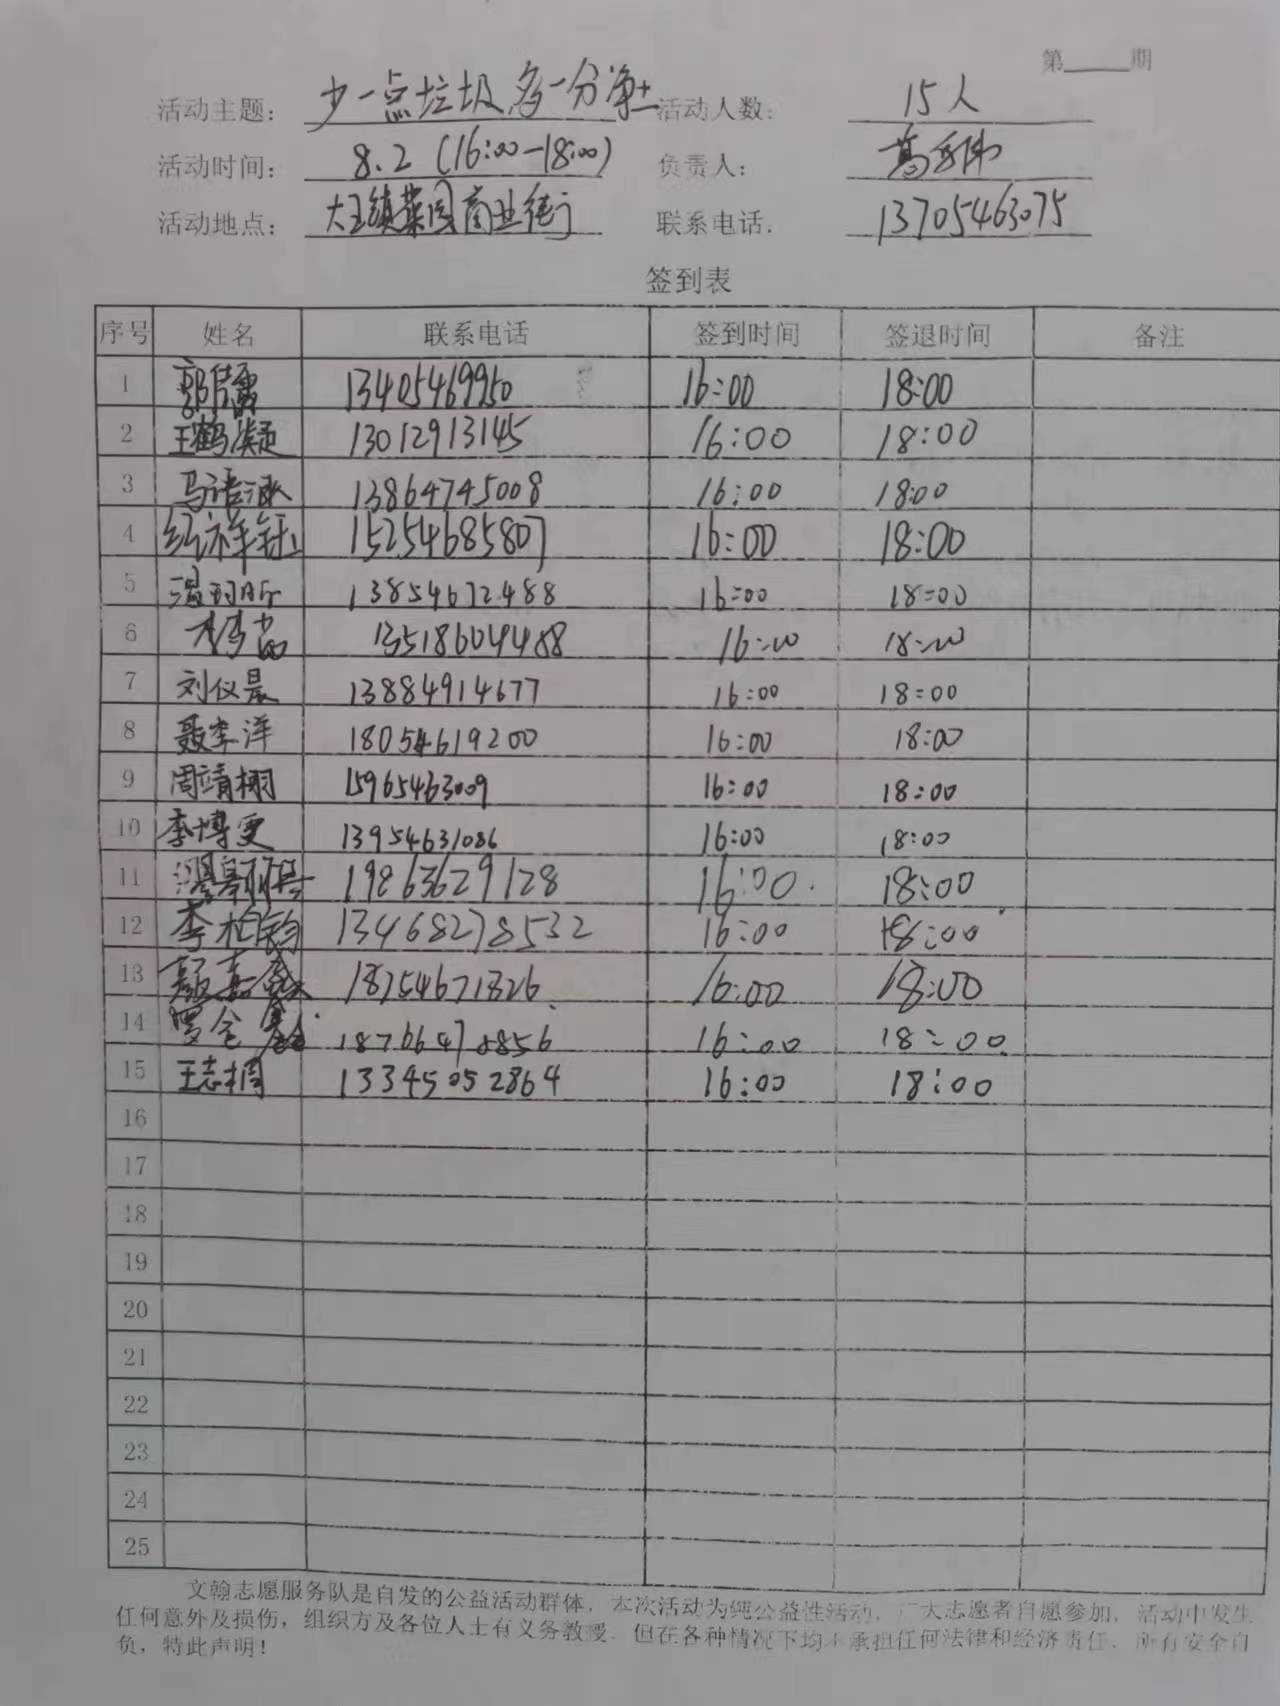 第____期
活动主题: 少一点垃圾多一分净土 活动人数: 15人
活动时间: 8.2 (16:00-18:00) 负责人:
活动地点: 大王镇菜园商业街 联系电话: 13705463075
签到表
序号 姓名 联系电话 签到时间 签退时间 备注
1 13405469950 16:00 18:00
2 王鹤凝 13012913145 16:00 18:00
3 马语涵 13864745008 16:00 18:00
4 15254685807 16:00 18:00
5 13854672488 16:00 18:00
6 13518604488 16:00 18:00
7 刘仪晨 13884914677 16:00 18:00
8 聂李洋 18054619200 16:00 18:00
9 周靖栩 15965463009 16:00 18:00
10 李博雯 13954631086 16:00 18:00
11 19863629128 16:00 18:00
12 13468278532 16:00 18:00
13 18754671826 16:00 18:00
14 16:00 18:00
15 王志桐 13345052864 16:00 18:00
16
17
18
19
20
21
22
23
24
25
文翰志愿服务队是自发的公益活动群体，本次活动为纯公益性活动，广大志愿者自愿参加，活动中发生
任何意外及损伤，组织方及各位人士有义务救援，但在各种情况下均不承担任何法律和经济责任，所有安全自
负，特此声明！